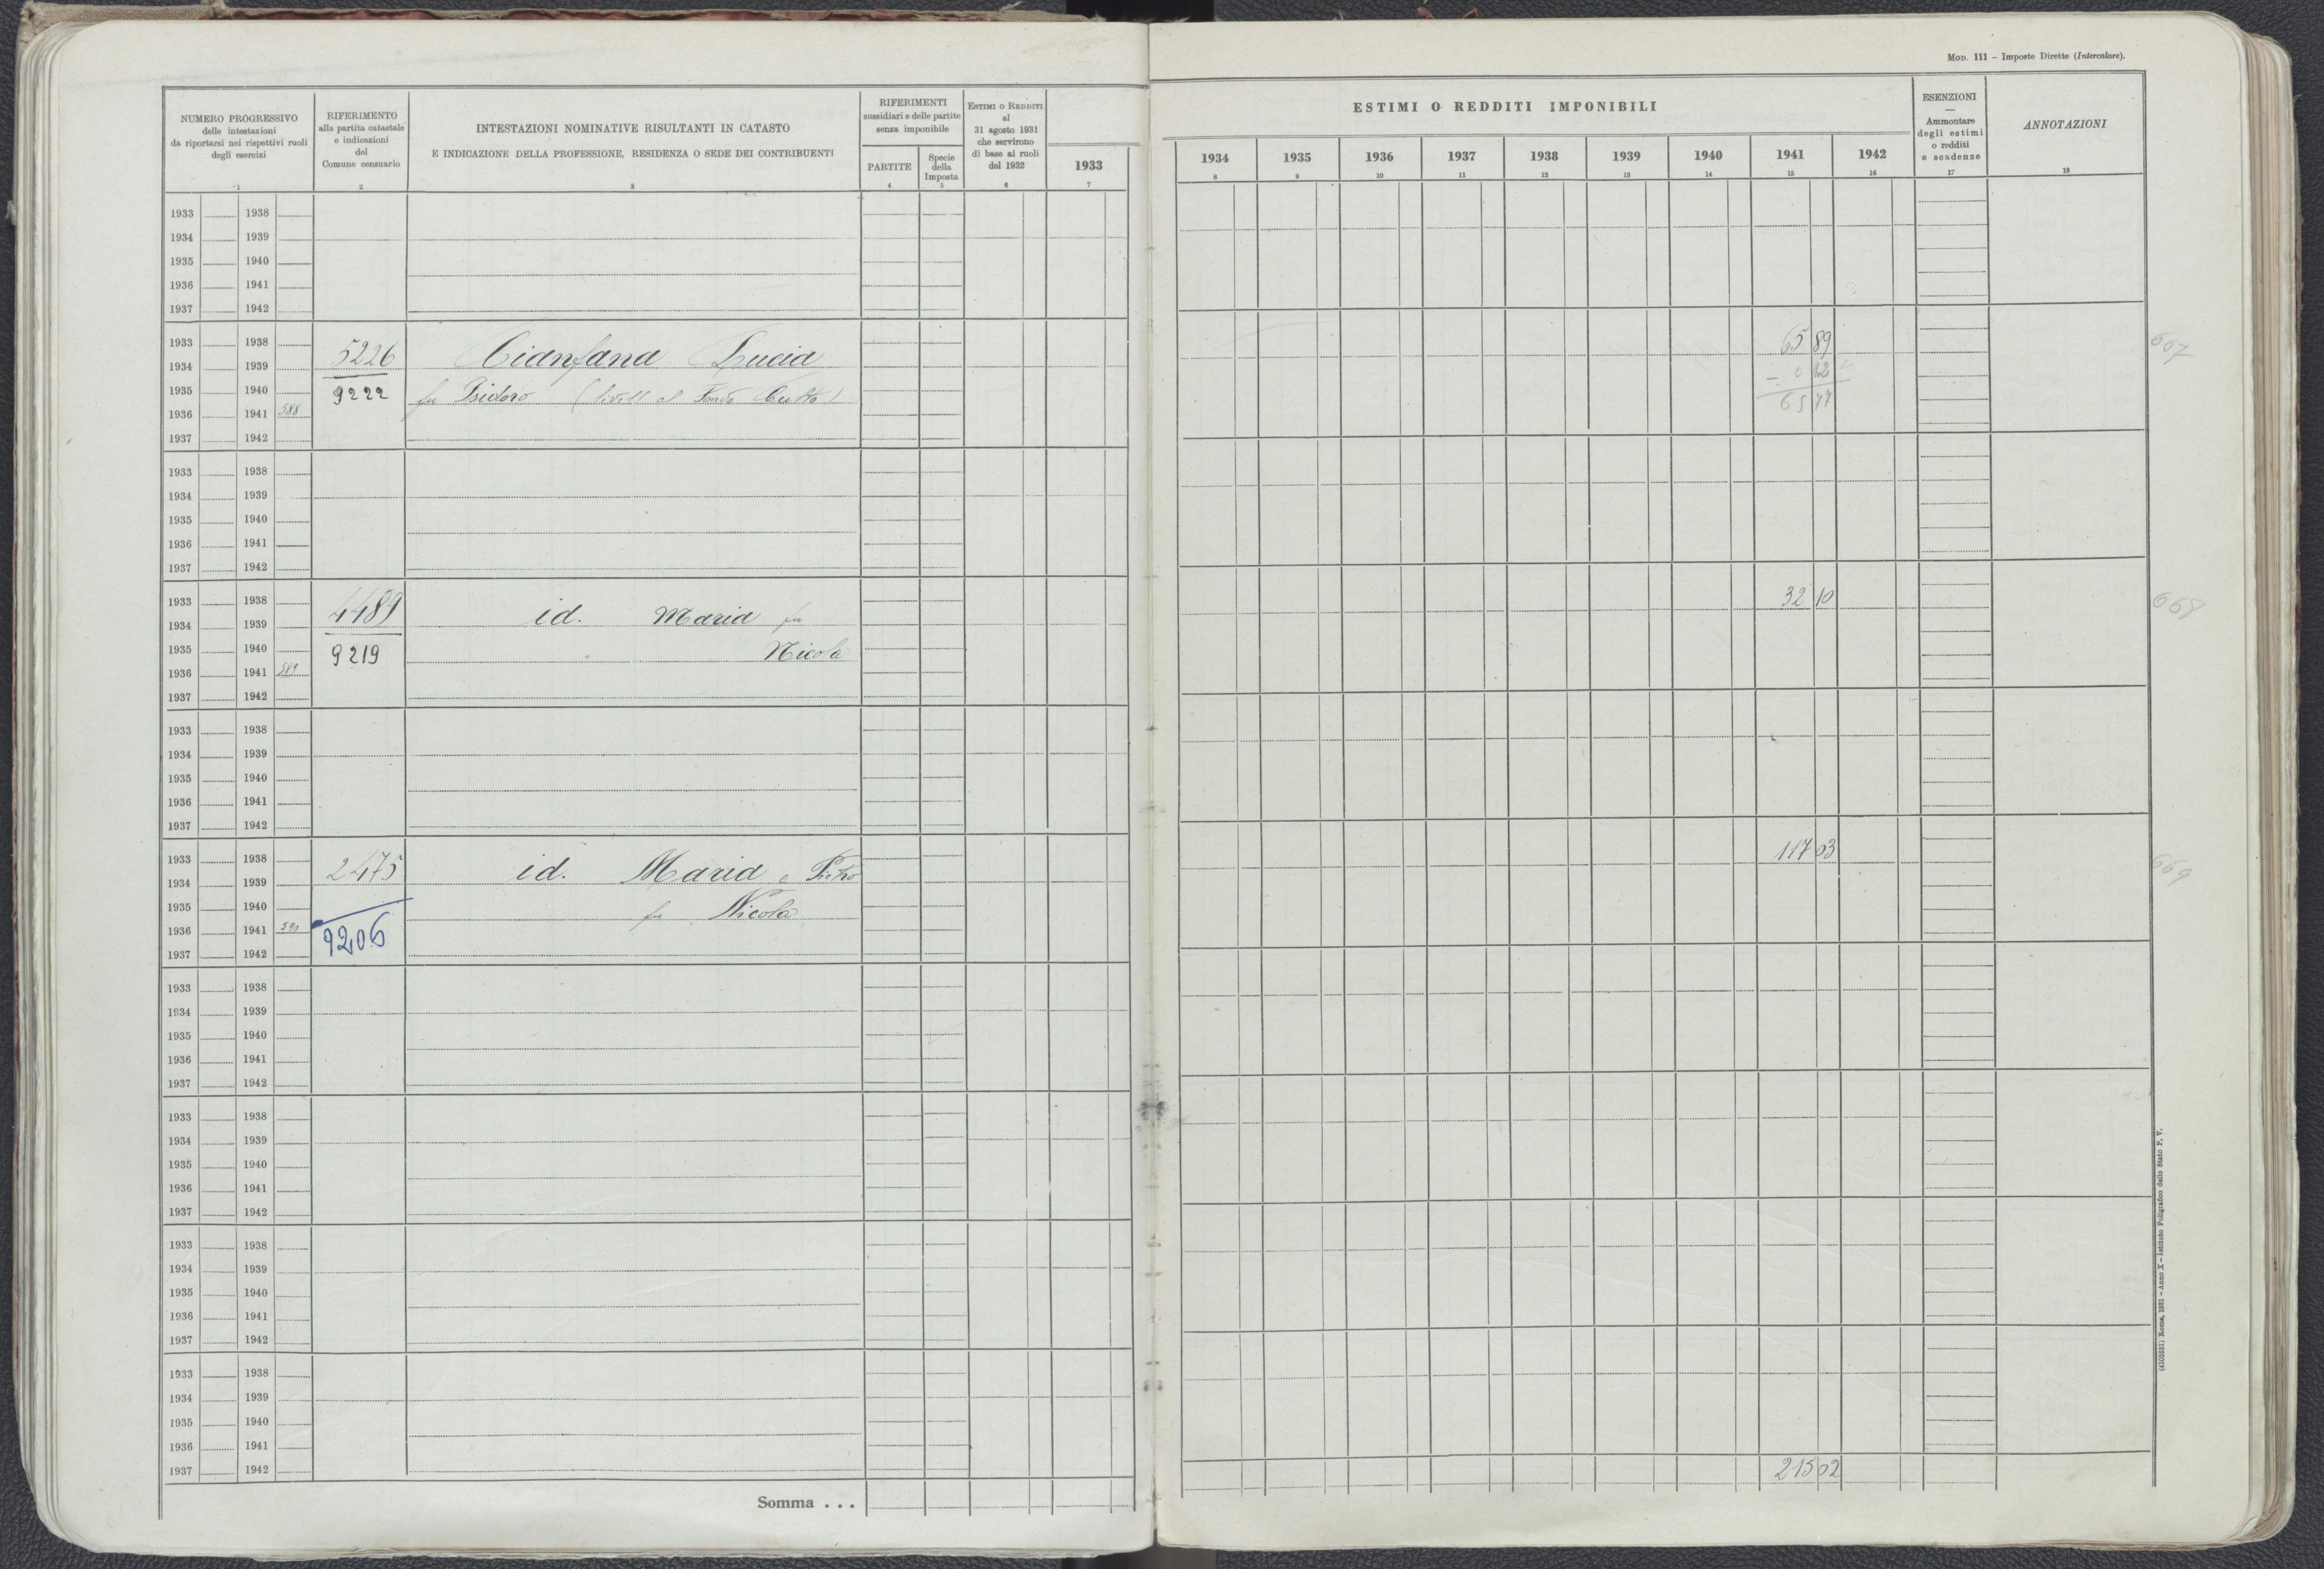 MOD. 111 – Imposte Dirette (Intercalare).
NUMERO PROGRESSIVO
delle intestazioni
da riportarsi nei rispettivi ruoli
degli esercizi
1
RIFERIMENTO
alla partita catastale
e indicazioni
del
Comune censuario
2
INTESTAZIONI NOMINATIVE RISULTANTI IN CATASTO
E INDICAZIONE DELLA PROFESSIONE, RESIDENZA O SEDE DEI CONTRIBUENTI
3
RIFERIMENTI
sussidiari e delle partite
senza imponibile
PARTITE
4
Specie
della
Imposta
5
ESTIMI O REDDITI
al
31 agosto 1931
che servirono
di base ai ruoli
del 1932
6
1933
7
ESTIMI O REDDITI IMPONIBILI
1934 1935 1936 1937 1938 1939 1940 1941 1942
8 9 10 11 12 13 14 15 16
ESENZIONI
—
Ammontare
degli estimi
o redditi
e scadenze
17
ANNOTAZIONI
18
1933 1938
1934 1939
1935 1940
1936 1941
1937 1942
1933 1938 5226 Cianfana Lucia 65 89 667
1934 1939
1935 1940 9222 fu Isidoro (livell al Fondo Culto) – 0 12
1936 1941 588 65 77
1937 1942
1933 1938
1934 1939
1935 1940
1936 1941
1937 1942
1933 1938 4489 id. Maria fu 32 10 668
1934 1939
1935 1940 9219 Nicola
1936 1941 589
1937 1942
1933 1938
1934 1939
1935 1940
1936 1941
1937 1942
1933 1938 2475 id. Maria e Pietro 117 03 669
1934 1939
1935 1940 fu Nicola
1936 1941 590 9206
1937 1942
1933 1938
1934 1939
1935 1940
1936 1941
1937 1942
1933 1938
1934 1939
1935 1940
1936 1941
1937 1942
1933 1938
1934 1939
1935 1940
1936 1941
1937 1942
1933 1938
1934 1939
1935 1940
1936 1941
1937 1942
215 02
Somma . . .
(4103581) Roma, 1931 – Anno X – Istituto Poligrafico dello Stato P. V.